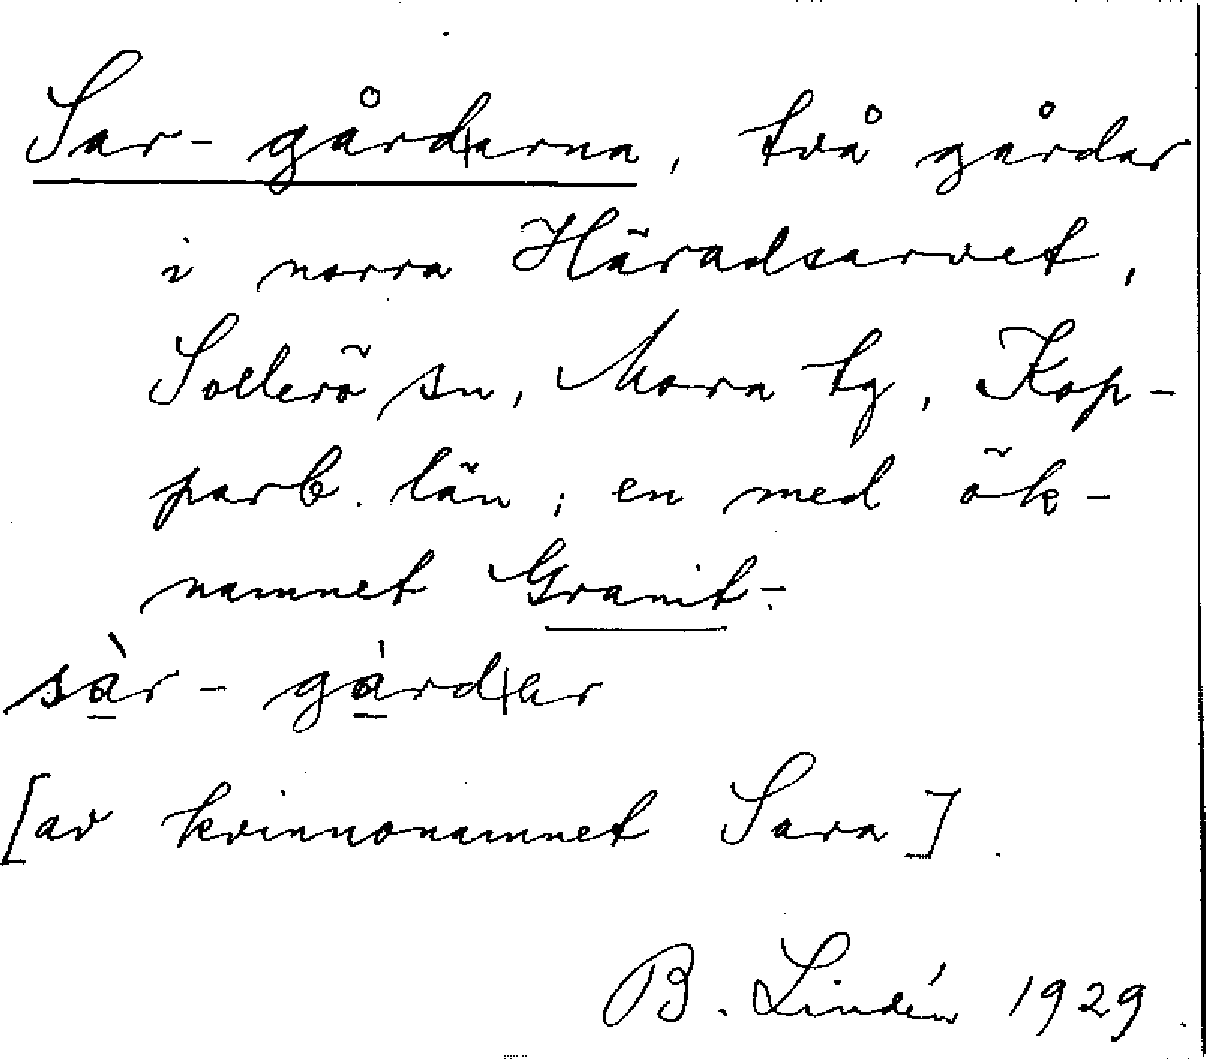 Sar-gårdarna, två gårdar
i norra Häradsarvet,
Sollerö sn, Mora tg, Kop-
parb. län; en med ök-
namnet Granit-.
sàr-gárdar
[av kvinnonamnet Sara].
B. Lindén 1929.